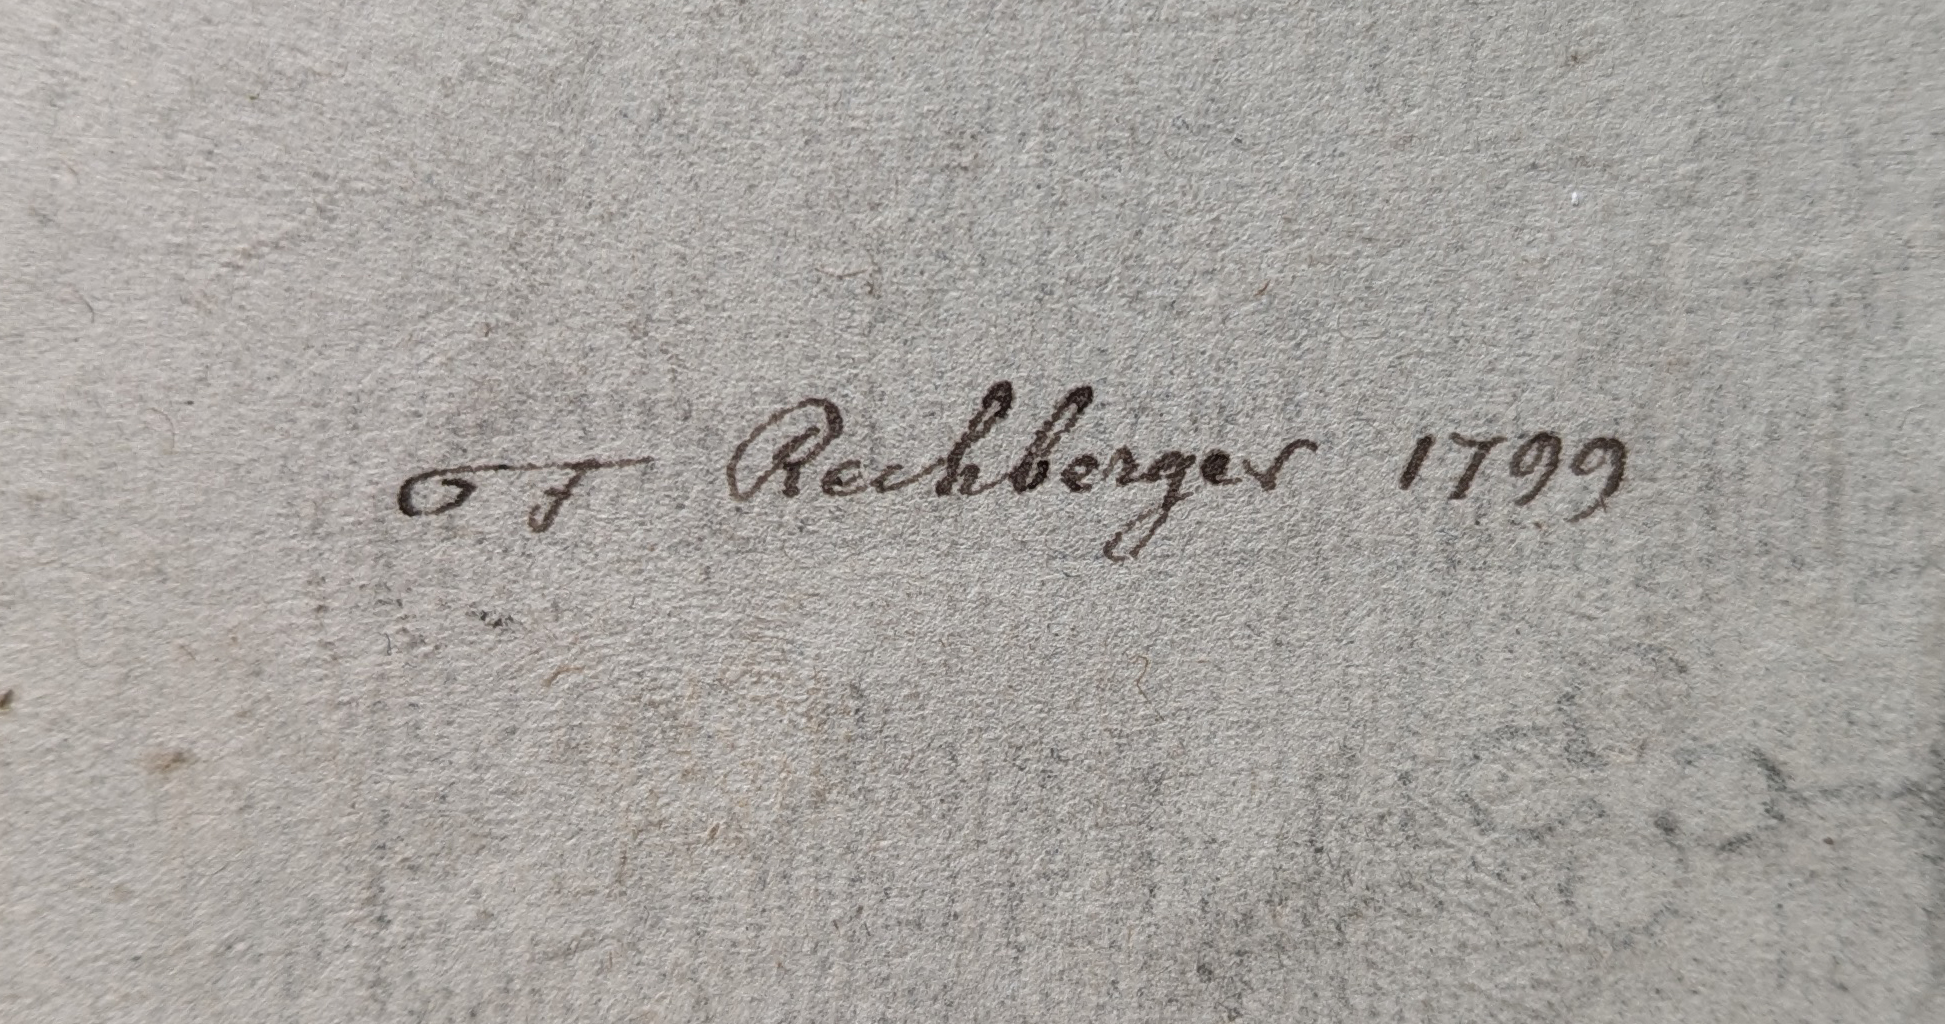 F Rechberger 1799